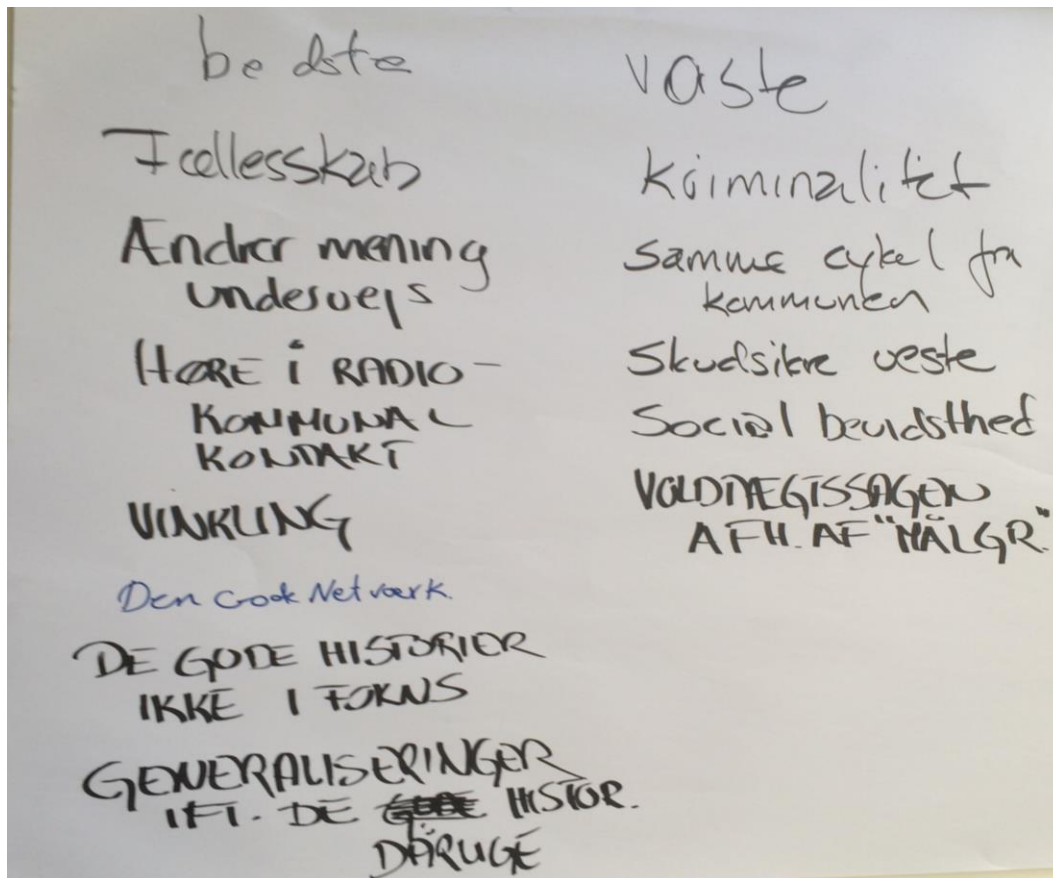 bedste
Fællesskab
Ændrer mening
undervejs
HØRE i RADIO-
KOMMUNAL
KONTAKT
VINKLING
Den Gode Netværk.
DE GODE HISTORIER
IKKE I FOKUS
GENERALISERINGER
IFT. DE HISTOR.
DÅRLIGE
værste
Kriminalitet
Samme cykel fra
kommunen
Skudsikre veste
Social bevidsthed
VOLDTÆGTSSAGEN
AFH. AF "MÅLGR."